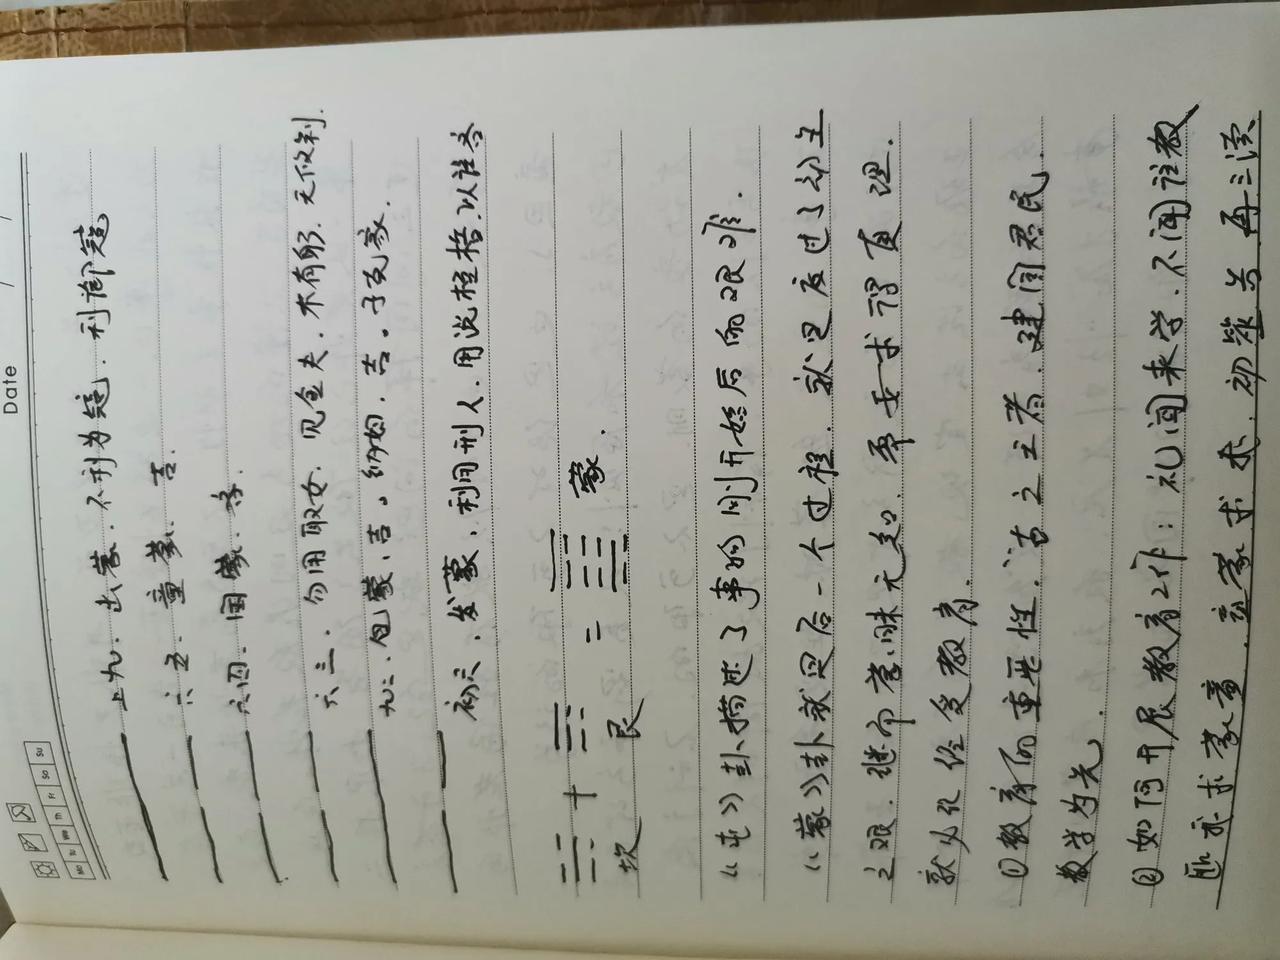 Date / /
Mo Tu We Th Fr Sa Su
上九. 击蒙. 不利为寇. 利御寇
六五. 童蒙. 吉.
六四. 困蒙. 吝.
六三. 勿用取女. 见金夫. 不有躬. 无攸利.
九二. 包蒙. 吉. 纳妇. 吉. 子克家.
初六. 发蒙. 利用刑人. 用说桎梏. 以往吝
+ = 蒙.
坎 艮
《屯》卦描述了事物刚开始后的艰难.
《蒙》卦就是后一个过程. 就是度过了初生
之艰. 继而蒙昧无知. 希 求得真理.
就必须经受教育.
①教育的重要性. 古之王者. 建国君民.
教学为先.
②如何开展教育工作: 礼闻来学. 不闻往教
匪我求童蒙. 童蒙求我. 初筮告 再三渎